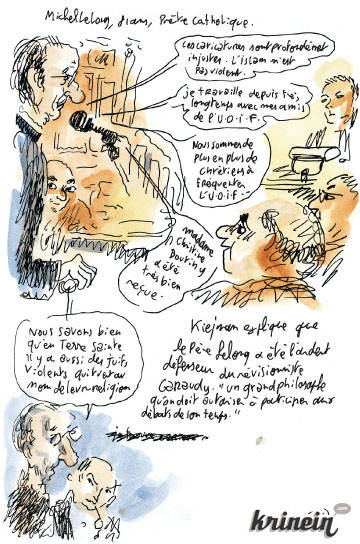 Michel Lelong, 81 ans, Prêtre catholique.
Les caricatures sont profondément
injustes. L'islam n'est
pas violent.
je travaille depuis très
longtemps avec mes amis
de l'U.O.I.F.
Nous sommes de
plus en plus de
chrétiens à
fréquenter
L'U.O.I.F.
madame
Christine
Boutin y
a été
très bien
reçue.
Nous savons bien
qu'en Terre Sainte
il y a aussi des juifs
violents qui tuent au
nom de leur religion
Kiejman explique que
le Père Lelong a été l'ardent
défenseur du révisionniste
Garaudy. "un grand philosophe
qu'on doit autoriser à participer aux
débats de son temps."
krinein
.com